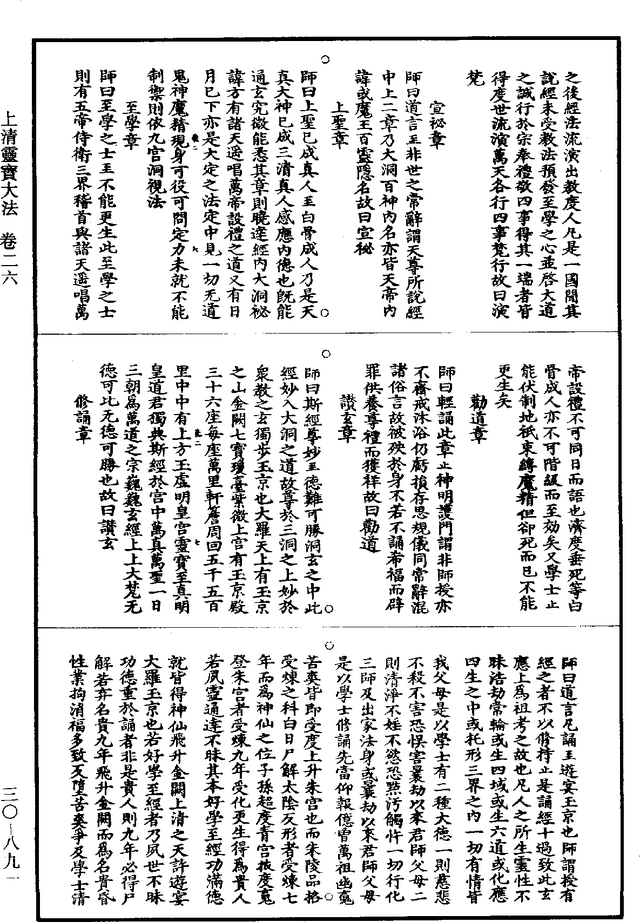 上清靈寶大法 卷二六
三〇—八九一
之後經法流演出教度人凡是一國聞其
說經未受教法預發至學之心並啓大道
之誠行於宗奉禮敬四事得其一端者皆
得度世流演萬天各行四事梵行故曰演
梵
宣祕章
師曰道言至非世之常辭謂天尊所說經
中上二章乃大洞百神內名亦皆天帝內
諱或魔王百靈隱名故曰宣祕
上聖章
師曰上聖已成真人至白骨成人乃是天
真大神已成三清真人感應內德也旣能
通玄究微能悉其章則曉達經內大洞祕
諱方有諸天遥唱萬帝設禮之道又有日
月已下亦是大定之法定中見一切无道
鬼神魔精現身可役可問定力未就不能
制禦則依九宫洞視法
至學章
師曰至學之士至不能更生此至學之士
則有五帝侍衛三界稽首與諸天遥唱萬
帝設禮不可同日而語也濟度垂死等白
骨成人亦不可階級而至効矣又學士止
能伏制地祇束縛魔精但却死而已不能
更生矣
勸道章
師曰輕誦此章止神明護門謂非師授亦
不齋戒沐浴仍虧損存思規儀同常辭混
諸俗言故被殃於身不若不誦希福而辟
罪供養尊禮而獲祥故曰勸道
讚玄章
師曰斯經尊妙至德難可勝洞玄之中此
經妙入大洞之道故尊於三洞之上妙於
衆教之玄獨步玉京也大羅天上有玉京
之山金闕七寶瓊臺紫微上宫有玉京殿
三十六座每座萬里軒簷周回五千五百
里中中有上方玉虛明皇宮靈寶至真明
皇道君獨典斯經於宫中萬真萬聖一日
三朝爲萬道之宗巍巍玄經上上大梵无
德可比无德可勝也故曰讚玄
修誦章
師曰道言凡誦至遊宴玉京也師謂授有
經之者不以脩持止是誦經十過致此玄
應上爲祖考之故也凡人之所生靈性不
昧浩劫常輪或生四域或生六道或化應
四生之中或托形三界之內一切有情皆
我父母是以學士有二種大德一則慈悲
不殺不害恐悞害曩劫以來君師父母二
則清淨不婬不慾恐黷汚觸忤一切行化
三師及出家法身或曩劫以來君師父母
是以學士修誦先當仰報億曾萬祖幽魂
苦爽皆即受度上升朱宫也而朱陵品格
受煉之科白日尸解太陰反形者受煉七
年而爲神仙之位子孫超度青宫拔度魂
登朱宫者受煉九年受化更生得爲貴人
若夙靈通達不昧其本好學至經功滿德
就皆得神仙飛升金闕上清之天許遊宴
大羅玉京也若好學至經者乃夙世不昧
功德重於誦者非是貴人則九年必得尸
解若弃名貴九年飛升金闕而爲名貴昏
性業拘消福多致反墮苦爽爭及學士清